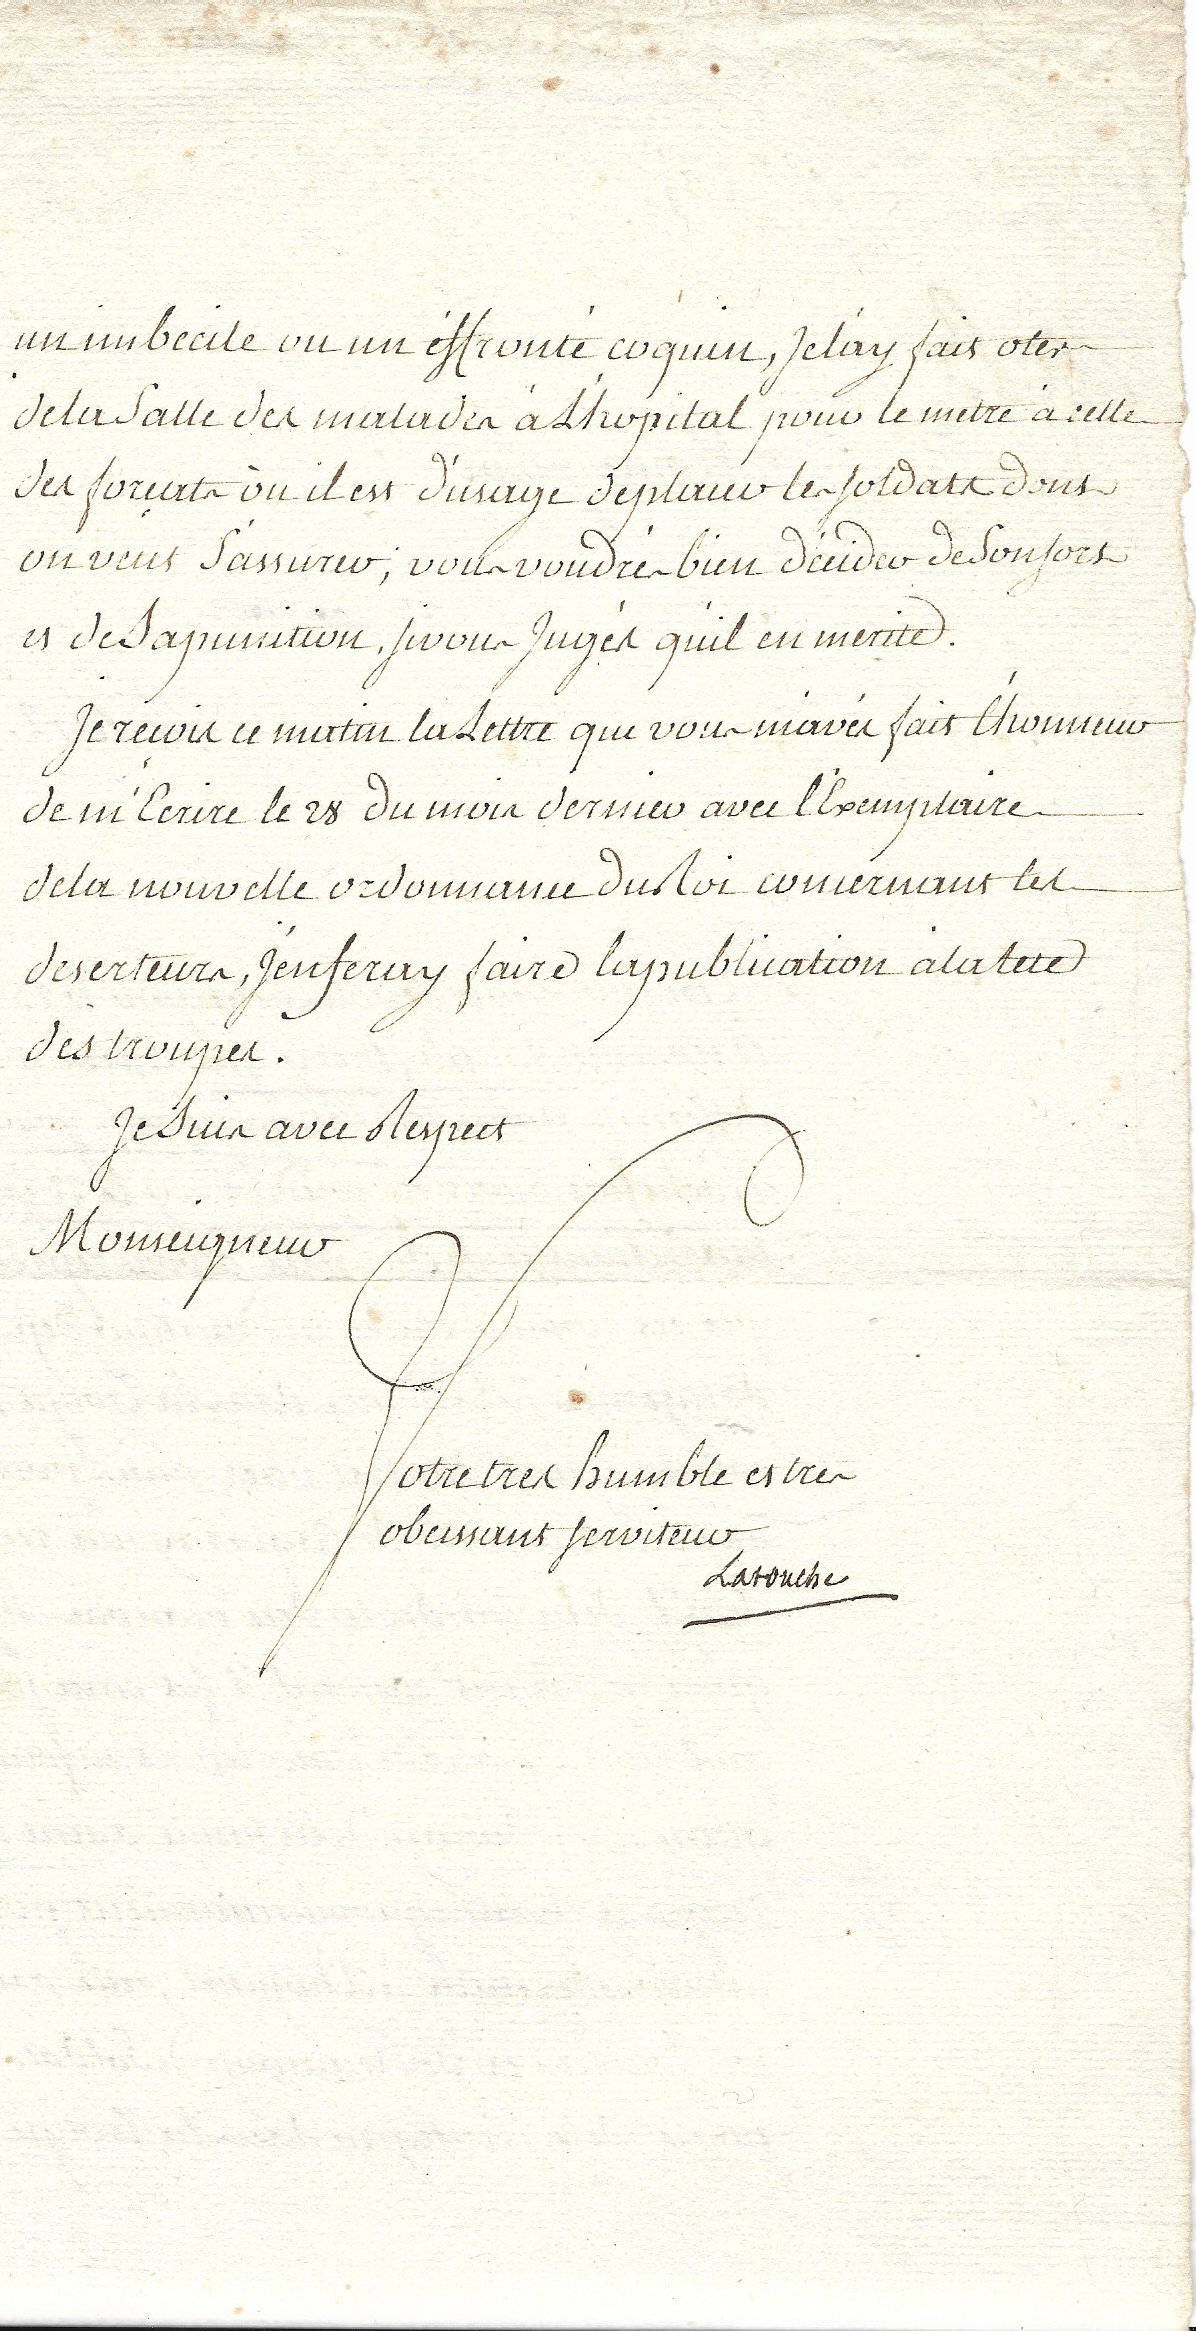 un imbecile ou un éffronté coquin, Je láy fait oter
de la Salle des malades à L'hopital pour le metre à celle
des forcats où il est d'usage de placer les soldats dont
on veut S'assurer; vous voudrés bien décider de Son sort
et de Sa punition, si vous Jugés qu'il en merite.
Je reçois ce matin la Lettre que vous m'avés fait l'honneur
de m'Ecrire le 28 du mois dernier avec l'Exemplaire
de la nouvelle ordonnance du Roi concernant les
deserteurs, J'en feray faire la publication à la tete
des troupes.
Je Suis avec Respect
Monseigneur
Votre tres humble et tres
obeissant serviteur
Latouche